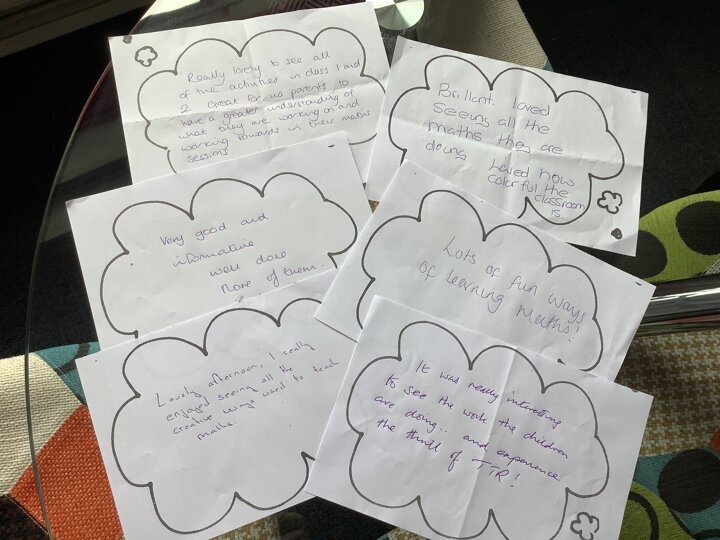 Really lovely to see all
of the activities in class 1 and
2 Great for us parents to
have a greater understanding of
what they are working on and
working towards in their maths
sessions
Brilliant, loved
seeing all the
maths they are
doing Loved how
colorful the
classroom
is
Very good and
informative
well done
more of them...
Lots of fun ways
of learning Maths!
Lovely afternoon, I really
enjoyed seeing all the
creative ways used to teach
maths.
It was really interesting
to see the work the children
are doing... and experience
the thrill of TTR!